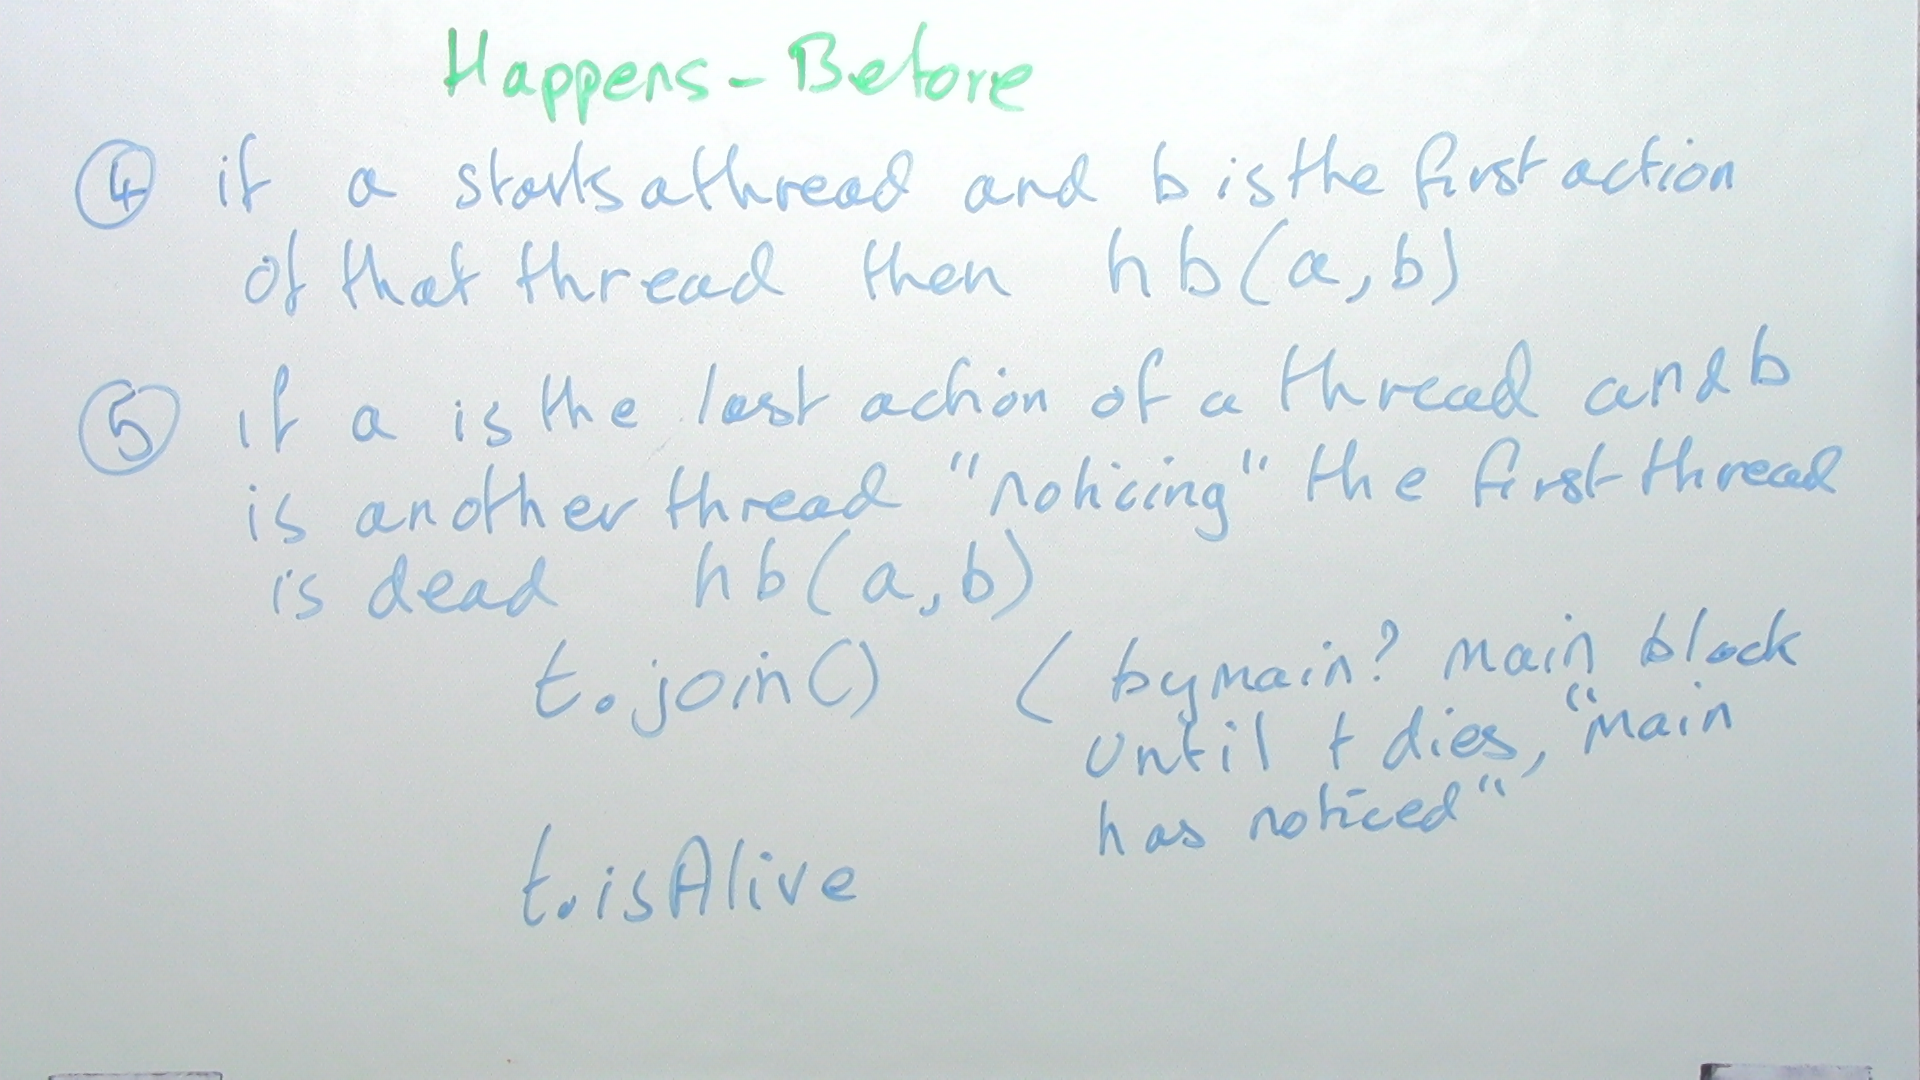 Happens-Before
④ if a starts a thread and b is the first action
of that thread then hb(a,b)
⑤ if a is the last action of a thread and b
is another thread "noticing" the first thread
is dead hb(a,b)
t.join() (by main? Main block
until t dies, "Main
has noticed"
t.isAlive